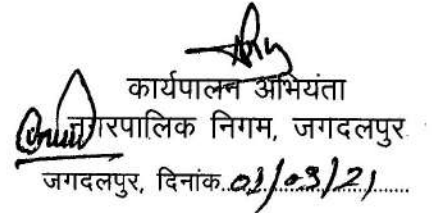 कार्यपालन अभियंता
नगरपालिक निगम, जगदलपुर
जगदलपुर, दिनांक 01/09/21